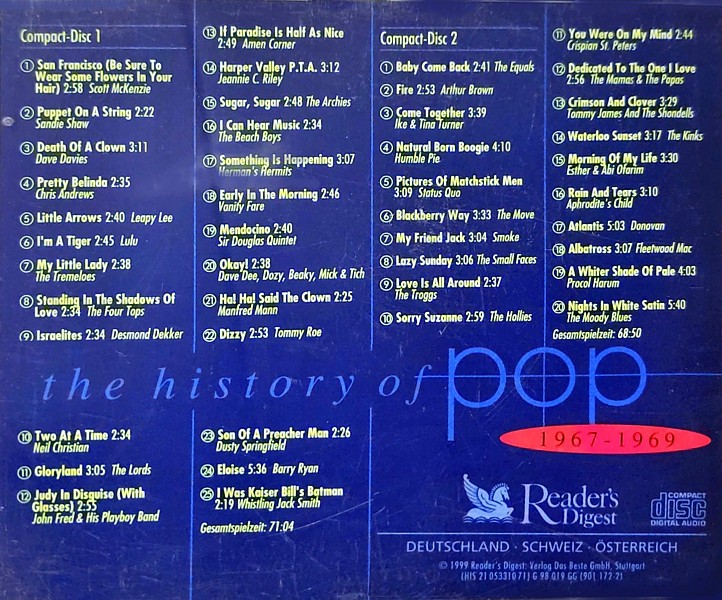 Compact-Disc 1
1 San Francisco (Be Sure To
Wear Some Flowers In Your
Hair) 2:58 Scott McKenzie
2 Puppet On A String 2:22
Sandie Shaw
3 Death Of A Clown 3:11
Dave Davies
4 Pretty Belinda 2:35
Chris Andrews
5 Little Arrows 2:40 Leapy Lee
6 I'm A Tiger 2:45 Lulu
7 My Little Lady 2:38
The Tremeloes
8 Standing In The Shadows Of
Love 2:34 The Four Tops
9 Israelites 2:34 Desmond Dekker
10 Two At A Time 2:34
Neil Christian
11 Gloryland 3:05 The Lords
12 Judy In Disguise (With
Glasses) 2:55
John Fred & His Playboy Band
13 If Paradise Is Half As Nice
2:49 Amen Corner
14 Harper Valley P.T.A. 3:12
Jeannie C. Riley
15 Sugar, Sugar 2:48 The Archies
16 I Can Hear Music 2:34
The Beach Boys
17 Something Is Happening 3:07
Herman's Hermits
18 Early In The Morning 2:46
Vanity Fare
19 Mendocino 2:40
Sir Douglas Quintet
20 Okay! 2:38
Dave Dee, Dozy, Beaky, Mick & Tich
21 Ha! Ha! Said The Clown 2:25
Manfred Mann
22 Dizzy 2:53 Tommy Roe
23 Son Of A Preacher Man 2:26
Dusty Springfield
24 Eloise 5:36 Barry Ryan
25 I Was Kaiser Bill's Batman
2:19 Whistling Jack Smith
Gesamtspielzeit: 71:04
Compact-Disc 2
1 Baby Come Back 2:41 The Equals
2 Fire 2:53 Arthur Brown
3 Come Together 3:39
Ike & Tina Turner
4 Natural Born Boogie 4:10
Humble Pie
5 Pictures Of Matchstick Men
3:09 Status Quo
6 Blackberry Way 3:33 The Move
7 My Friend Jack 3:04 Smoke
8 Lazy Sunday 3:06 The Small Faces
9 Love Is All Around 2:37
The Troggs
10 Sorry Suzanne 2:59 The Hollies
11 You Were On My Mind 2:44
Crispian St. Peters
12 Dedicated To The One I Love
2:56 The Mamas & The Papas
13 Crimson And Clover 3:29
Tommy James And The Shondells
14 Waterloo Sunset 3:17 The Kinks
15 Morning Of My Life 3:30
Esther & Abi Ofarim
16 Rain And Tears 3:10
Aphrodite's Child
17 Atlantis 5:03 Donovan
18 Albatross 3:07 Fleetwood Mac
19 A Whiter Shade Of Pale 4:03
Procol Harum
20 Nights In White Satin 5:40
The Moody Blues
Gesamtspielzeit: 68:50
the history of pop
1967-1969
Reader's
Digest
COMPACT
disc
DIGITAL AUDIO
DEUTSCHLAND · SCHWEIZ · ÖSTERREICH
© 1999 Reader's Digest: Verlag Das Beste GmbH, Stuttgart
(HIS 21 053310 71) G 98 019 GG (901 172-21)